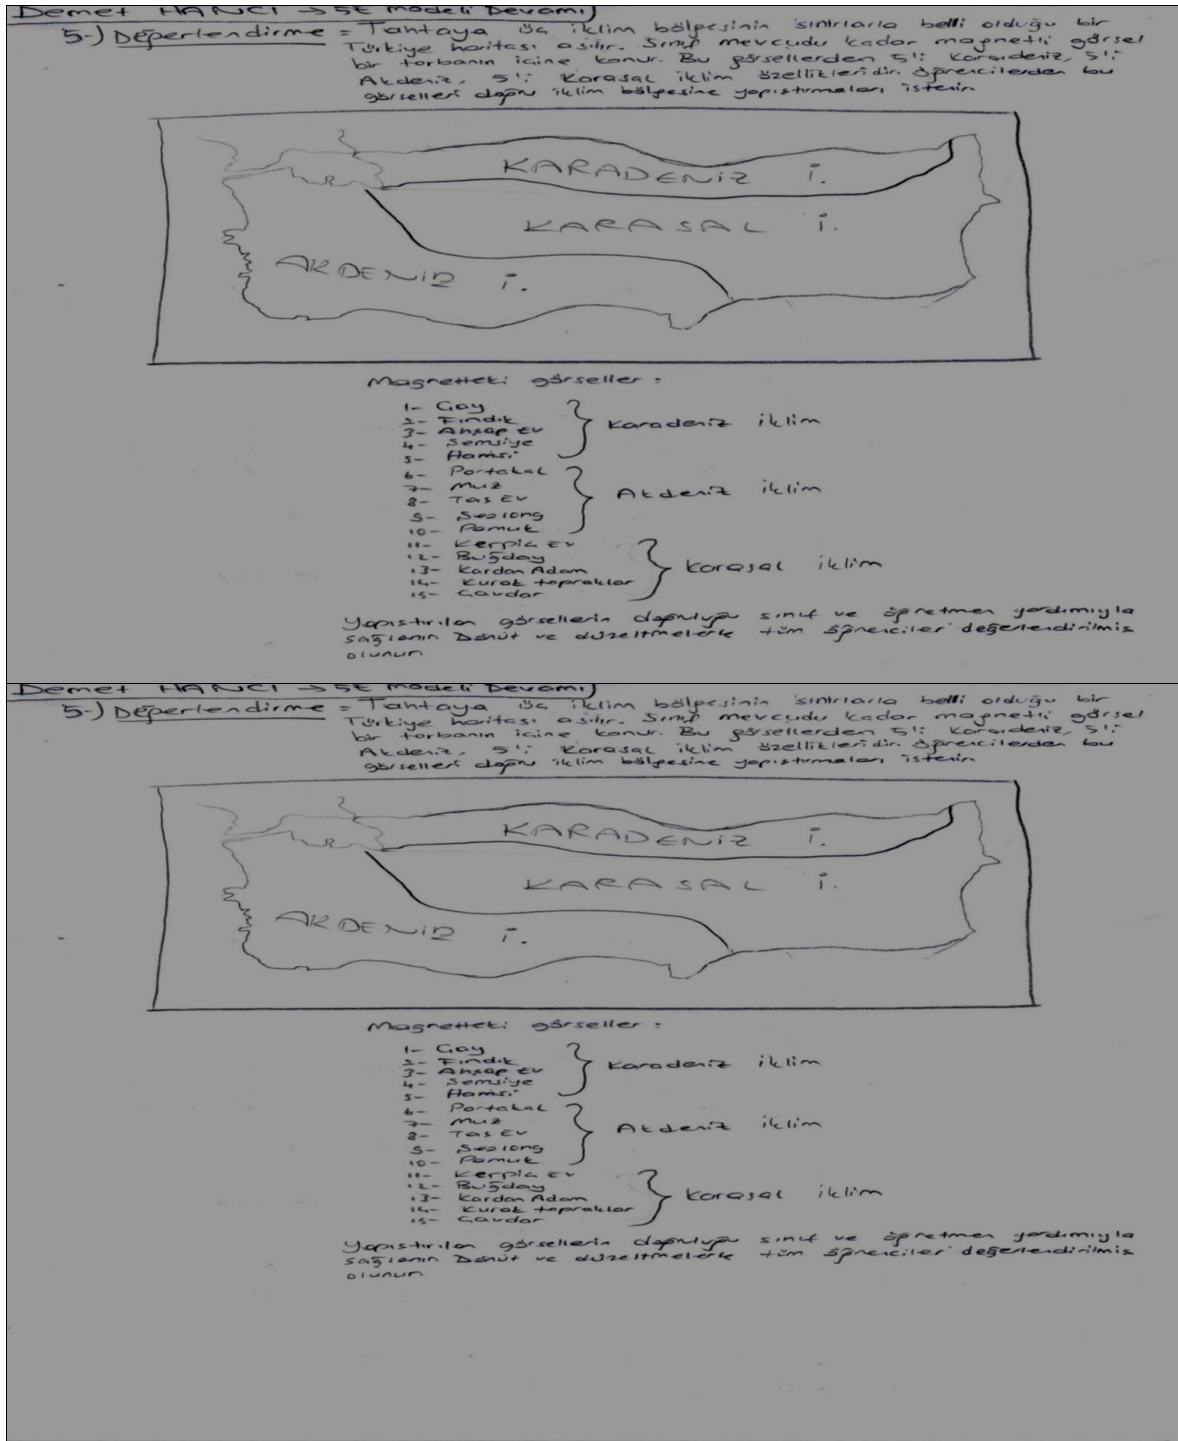 Demet HANCI → 5E modeli Devamı)
5-) Değerlendirme = Tahtaya üç iklim bölgesinin sınırlarla belli olduğu bir
Türkiye haritası asılır. Sınıf mevcudu kadar magnetli görsel
bir torbanın içine konur. Bu görsellerden 5'i Karadeniz, 5'i
Akdeniz, 5'i Karasal iklim özellikleridir. Öğrencilerden bu
görselleri doğru iklim bölgesine yapıştırmaları istenir.
KARADENİZ İ.
KARASAL İ.
AKDENİZ İ.
Magnetteki görseller :
1- Çay
2- Fındık
3- Ahşap Ev
4- Şemsiye
5- Hamsi
Karadeniz iklim
6- Portakal
7- Muz
8- Taş Ev
9- Şezlong
10- Pamuk
Akdeniz iklim
11- Kerpiç Ev
12- Buğday
13- Kardan Adam
14- Kurak topraklar
15- Çavdar
Karasal iklim
Yapıştırılan görsellerin doğruluğu sınıf ve öğretmen yardımıyla
sağlanır. Dönüt ve düzeltmelerle tüm öğrenciler değerlendirilmiş
olunur.
Demet HANCI → 5E modeli Devamı)
5-) Değerlendirme = Tahtaya üç iklim bölgesinin sınırlarla belli olduğu bir
Türkiye haritası asılır. Sınıf mevcudu kadar magnetli görsel
bir torbanın içine konur. Bu görsellerden 5'i Karadeniz, 5'i
Akdeniz, 5'i Karasal iklim özellikleridir. Öğrencilerden bu
görselleri doğru iklim bölgesine yapıştırmaları istenir.
KARADENİZ İ.
KARASAL İ.
AKDENİZ İ.
Magnetteki görseller :
1- Çay
2- Fındık
3- Ahşap Ev
4- Şemsiye
5- Hamsi
Karadeniz iklim
6- Portakal
7- Muz
8- Taş Ev
9- Şezlong
10- Pamuk
Akdeniz iklim
11- Kerpiç Ev
12- Buğday
13- Kardan Adam
14- Kurak topraklar
15- Çavdar
Karasal iklim
Yapıştırılan görsellerin doğruluğu sınıf ve öğretmen yardımıyla
sağlanır. Dönüt ve düzeltmelerle tüm öğrenciler değerlendirilmiş
olunur.